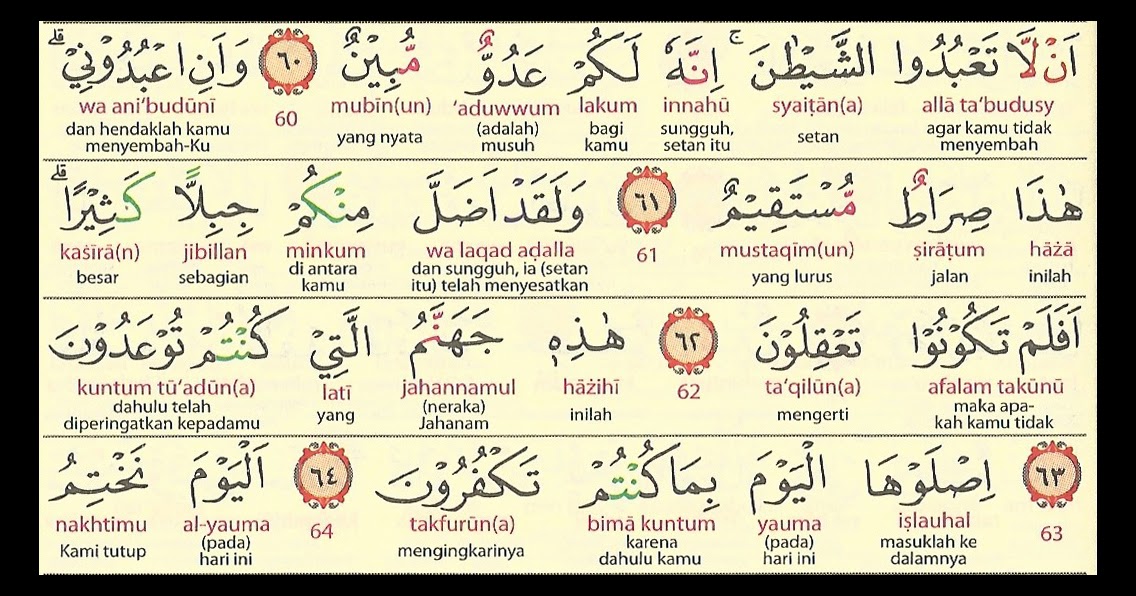 اَنْ لَّا تَعْبُدُوا الشَّيْطٰنَۚ اِنَّهٗ لَكُمْ عَدُوٌّ مُّبِيْنٌ ٦٠ وَاَنِ اعْبُدُوْنِيْ ۗ
allā ta‘budusy syaiṭān(a) innahū lakum ‘aduwwum mubīn(un) 60 wa ani‘budūnī
agar kamu tidak menyembah setan sungguh, setan itu bagi kamu (adalah) musuh yang nyata dan hendaklah kamu menyembah-Ku
هٰذَا صِرَاطٌ مُّسْتَقِيْمٌ ٦١ وَلَقَدْ اَضَلَّ مِنْكُمْ جِبِلًّا كَثِيْرًا ۗ
hāżā ṣirāṭum mustaqīm(un) 61 wa laqad aḍalla minkum jibillan kaṡīrā(n)
inilah jalan yang lurus dan sungguh, ia (setan itu) telah menyesatkan di antara kamu sebagian besar
اَفَلَمْ تَكُوْنُوْا تَعْقِلُوْنَ ٦٢ هٰذِهٖ جَهَنَّمُ الَّتِيْ كُنْتُمْ تُوْعَدُوْنَ
afalam takūnū ta‘qilūn(a) 62 hāżihī jahannamul latī kuntum tū‘adūn(a)
maka apa-kah kamu tidak mengerti inilah (neraka) Jahanam yang dahulu telah diperingatkan kepadamu
٦٣ اِصْلَوْهَا الْيَوْمَ بِمَا كُنْتُمْ تَكْفُرُوْنَ ٦٤ اَلْيَوْمَ نَخْتِمُ
63 iṣlauhal yauma bimā kuntum takfurūn(a) 64 al-yauma nakhtimu
masuklah ke dalamnya (pada) hari ini karena dahulu kamu mengingkarinya (pada) hari ini Kami tutup